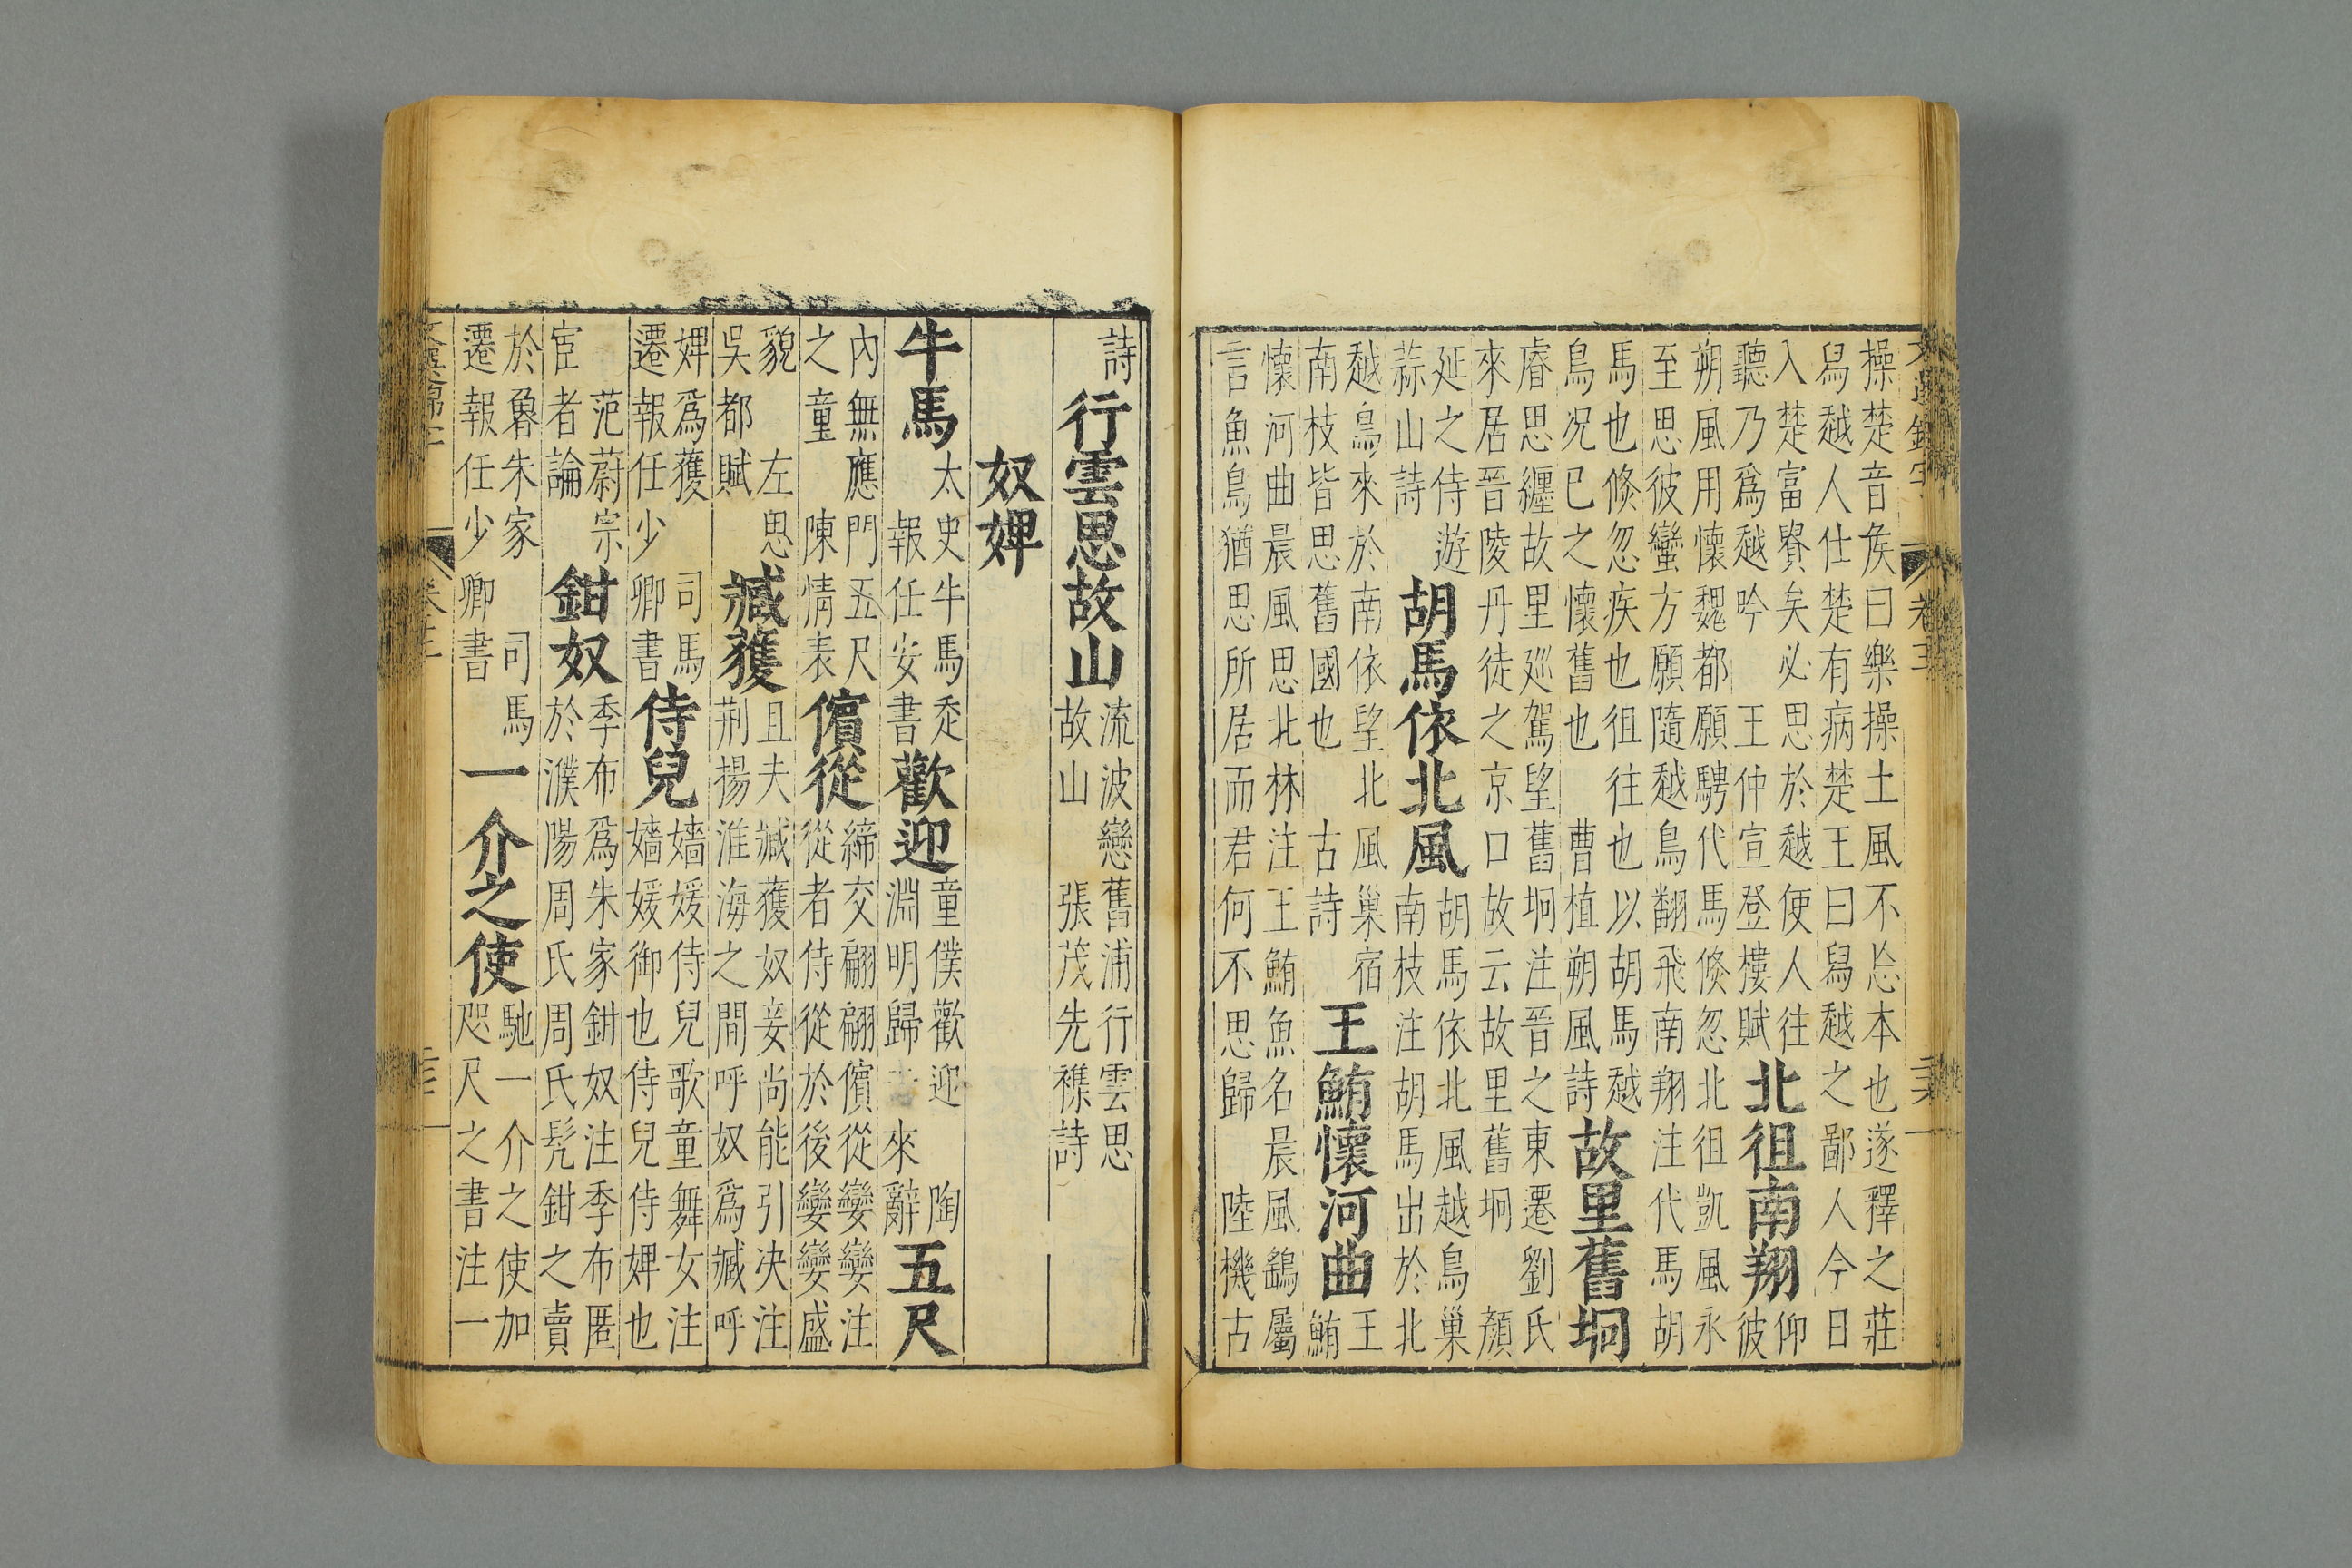 操楚音侯曰樂操土風不忘本也遂釋之莊
舄越人仕楚有病楚王曰舄越之鄙人今日
入楚富貴矣必思於越使人往
聽乃爲越吟 王仲宣登樓賦
北徂南翔
仰
彼
朔風用懷魏都願騁代馬倏忽北徂凱風永
至思彼蠻方願隨越鳥翻飛南翔注代馬胡
馬也倏忽疾也徂往也以胡馬越
鳥況已之懷舊也 曹植朔風詩
故里舊坰
睿思纏故里巡駕望舊坰注晉之東遷劉氏
來居晉陵丹徒之京口故云故里舊坰 顏
延之侍遊
蒜山詩
胡馬依北風
胡馬依北風越鳥巢
南枝注胡馬出於北
越鳥來於南依望北風巢宿
南枝皆思舊國也 古詩
王鮪懷河曲
王
鮪
懷河曲晨風思北林注王鮪魚名晨風鷂屬
言魚鳥猶思所居而君何不思歸 陸機古
詩
行雲思故山
流波戀舊浦行雲思
故山 張茂先襍詩
奴婢
牛馬
太史牛馬走
報任安書
歡迎
童僕歡迎 陶
淵明歸去來辭
五尺
內無應門五尺
之童 陳情表
儐從
締交翩翩儐從孌孌注
從者侍從於後孌孌盛
貌 左思
吳都賦
臧獲
且夫臧獲奴妾尚能引決注
荆揚淮海之間呼奴爲臧呼
婢爲獲 司馬
遷報任少卿書
侍兒
嬙媛侍兒歌童舞女注
嬙媛御也侍兒侍婢也
范蔚宗
宦者論
鉗奴
季布爲朱家鉗奴注季布匿
於濮陽周氏周氏髡鉗之賣
於魯朱家 司馬
遷報任少卿書
一介之使
馳一介之使加
咫尺之書注一